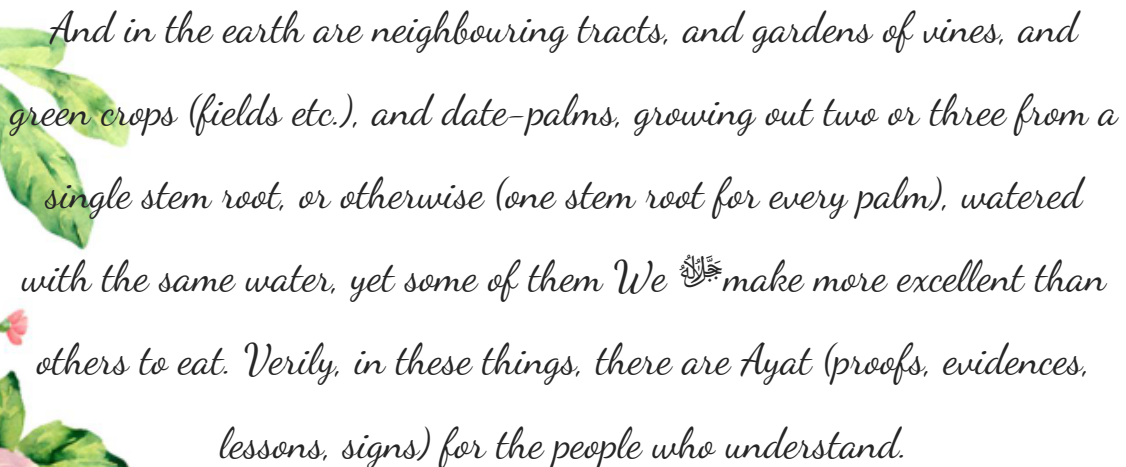 And in the earth are neighbouring tracts, and gardens of vines, and
green crops (fields etc.), and date-palms, growing out two or three from a
single stem root, or otherwise (one stem root for every palm), watered
with the same water, yet some of them We ﷻ make more excellent than
others to eat. Verily, in these things, there are Ayat (proofs, evidences,
lessons, signs) for the people who understand.